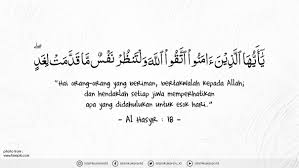 يَٰٓأَيُّهَا ٱلَّذِينَ ءَامَنُوا۟ ٱتَّقُوا۟ ٱللَّهَ وَلْتَنظُرْ نَفْسٌ مَّا قَدَّمَتْ لِغَدٍ ۖ
"Hai orang-orang yang beriman, bertakwalah kepada Allah;
dan hendaklah setiap jiwa memperhatikan
apa yang didahulukan untuk esok hari."
- Al Hasyr : 18 -
photo from :